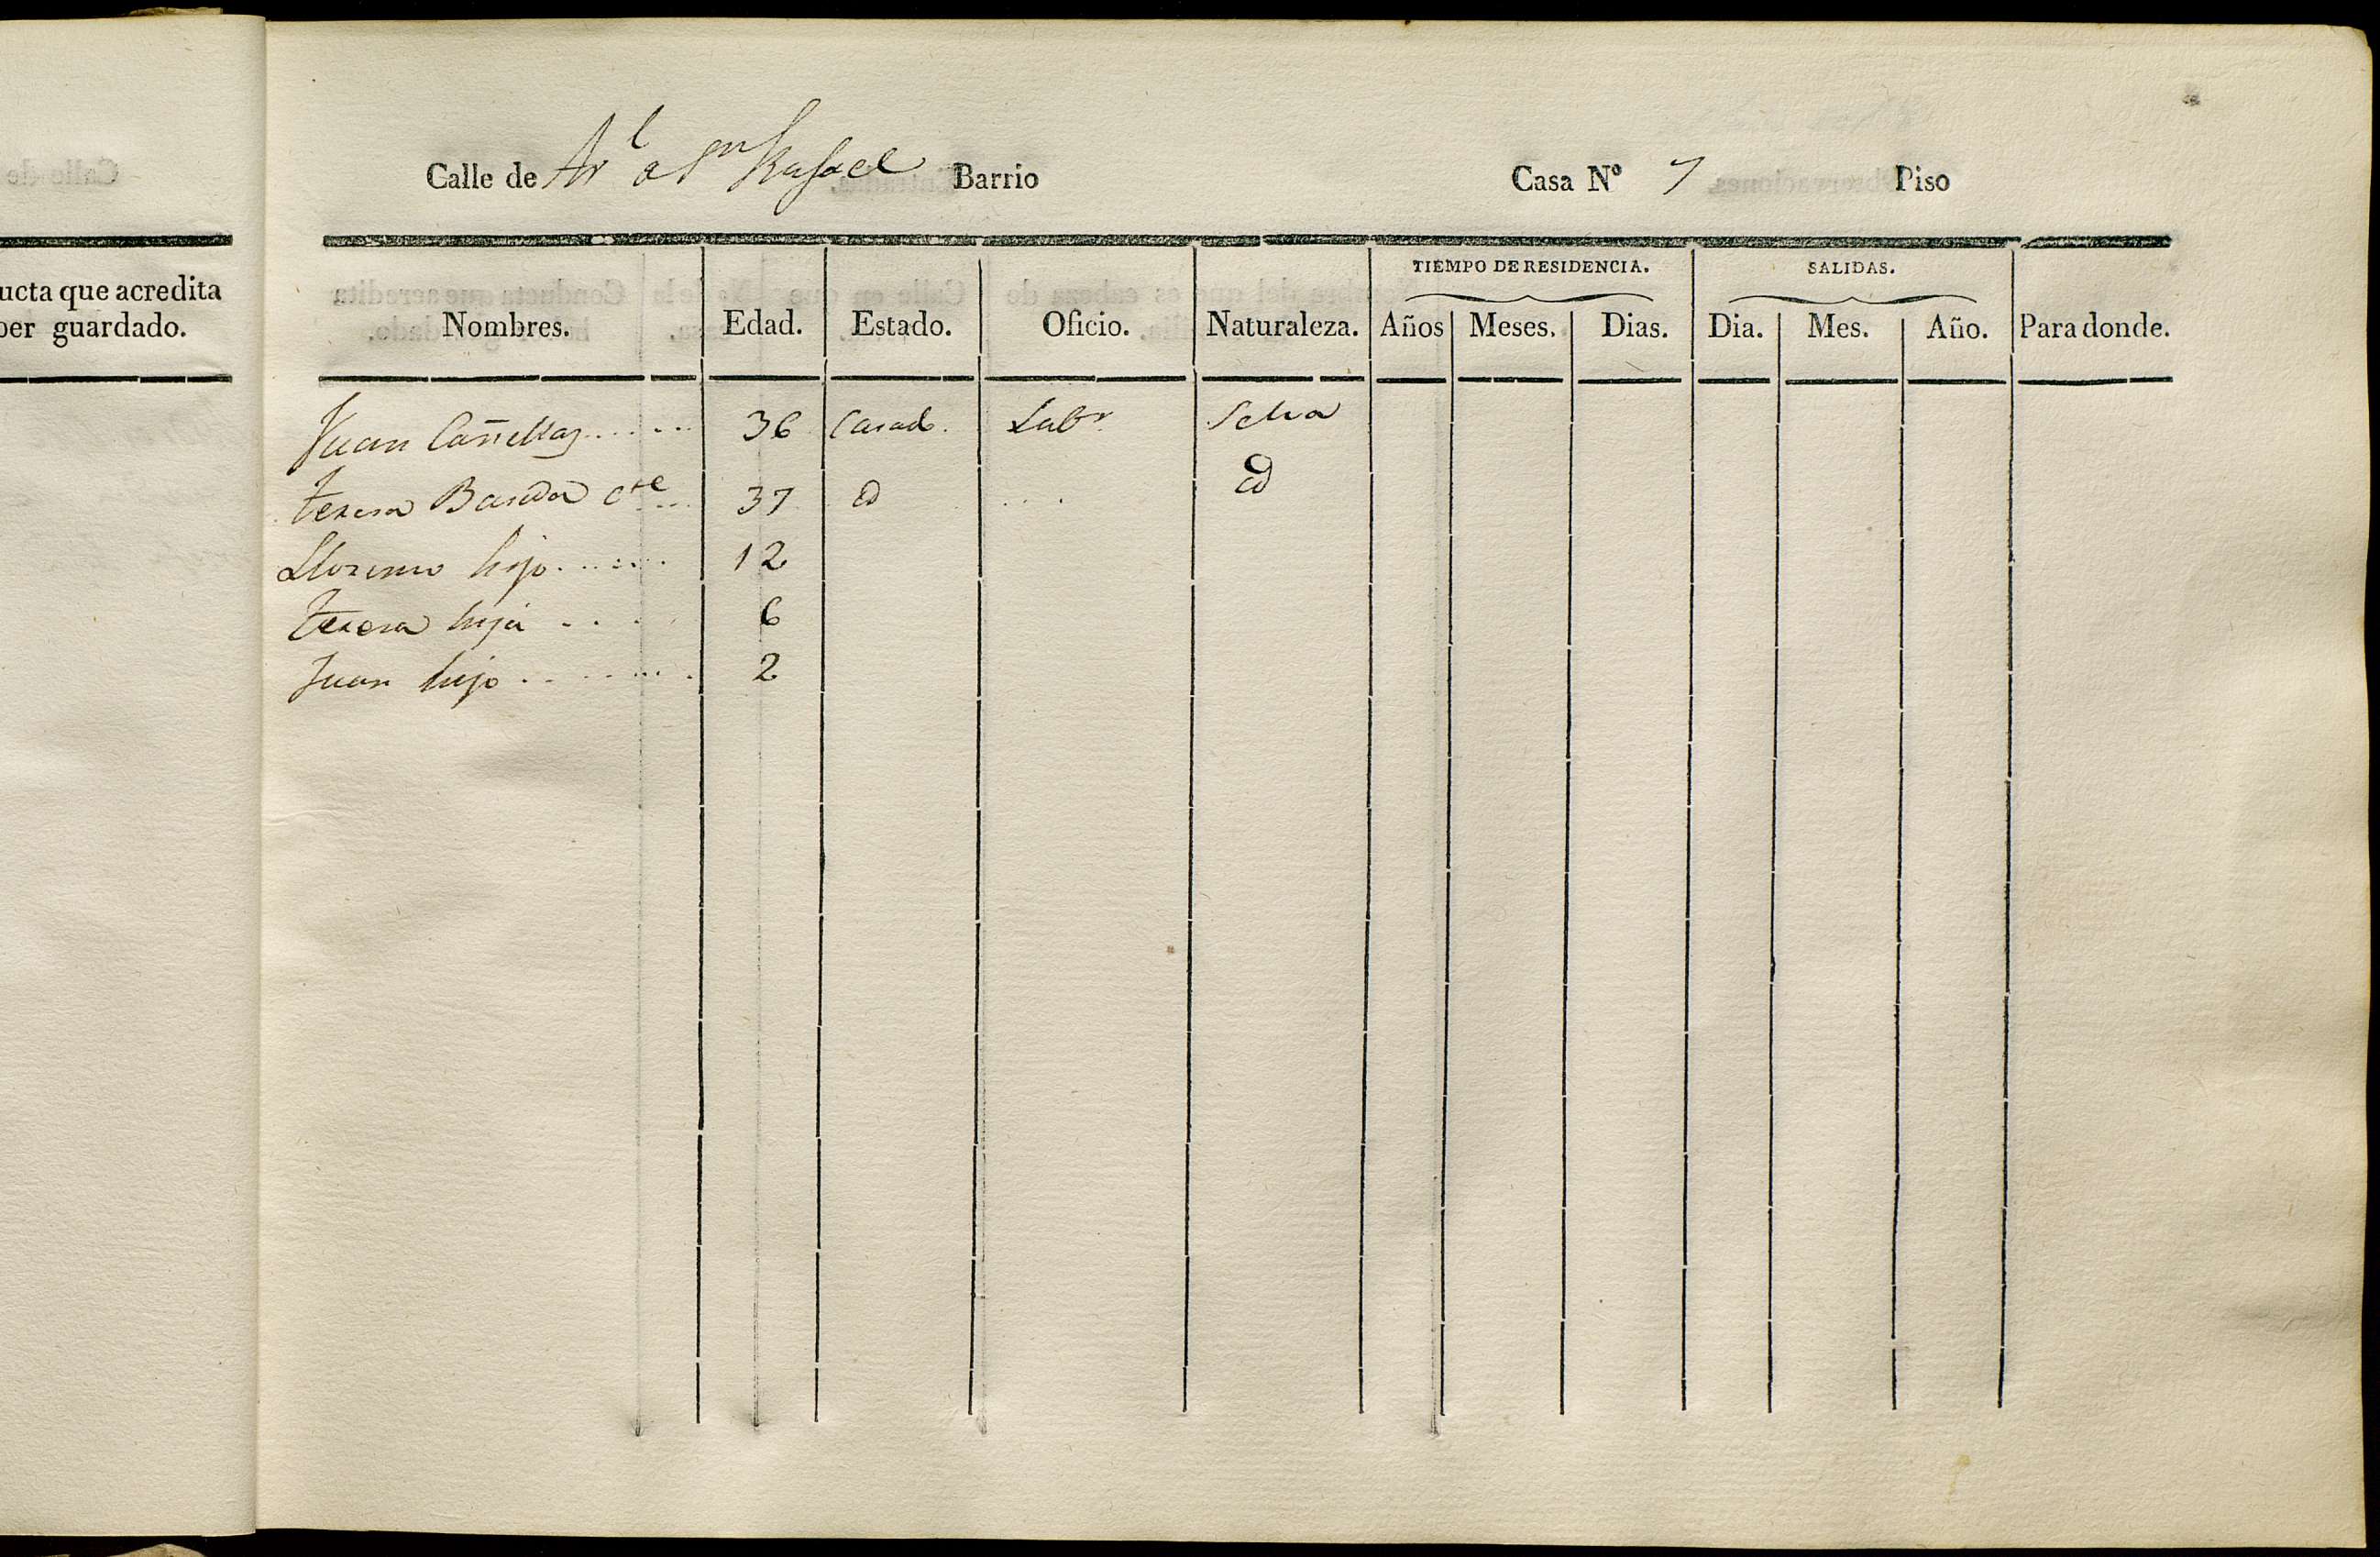 ucta que acredita
ber guardado.
Calle de Ar.l a Sn Rafael Barrio Casa Nº 7 Piso
TIEMPO DE RESIDENCIA. SALIDAS.
Nombres. Edad. Estado. Oficio. Naturaleza. Años Meses. Dias. Dia. Mes. Año. Para donde.
Juan Cañellas 36 Casado. Labr. Selva
teresa cte 37 id id
Llorenso hijo 12
teresa hija 6
Juan hijo 2